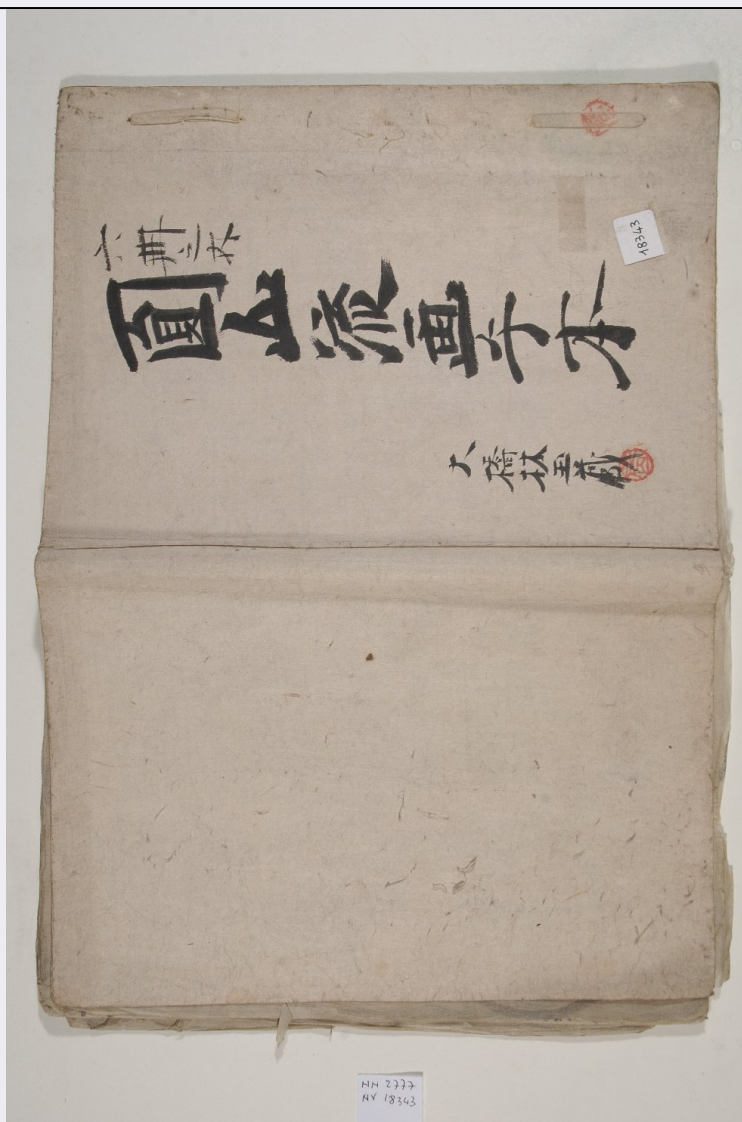 六冊之内
圓山流画手本
大橋林玉蔵
18343
NN 2777
NV 18343